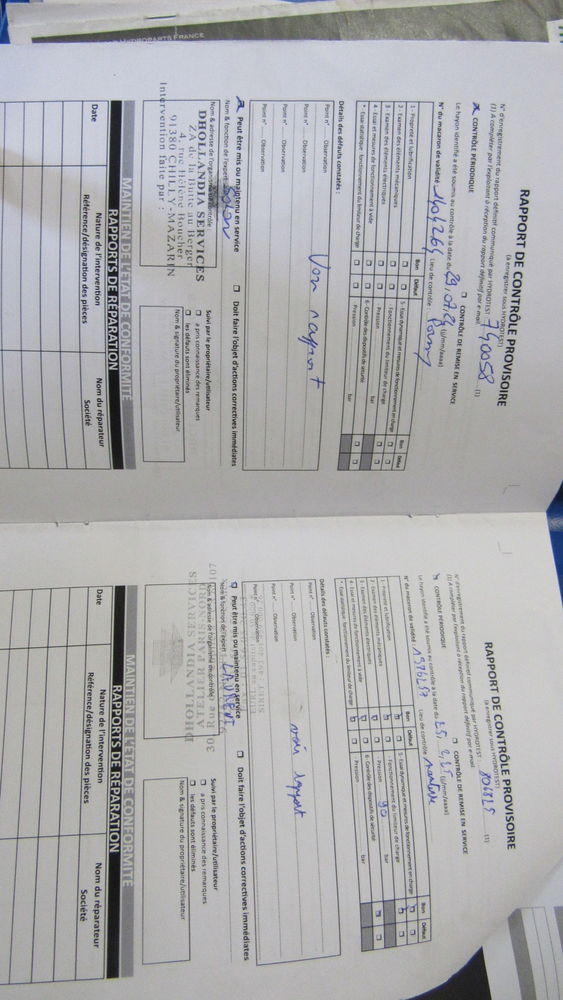 HYDROPARTS FRANCE
RAPPORT DE CONTRÔLE PROVISOIRE
(à enregistrer sous HYDROTEST)
N° d'enregistrement du rapport définitif communiqué par HYDROTEST : 740058 (1)
(1) A compléter par l'exploitant à réception du rapport définitif par e-mail
CONTRÔLE PÉRIODIQUE
CONTRÔLE DE REMISE EN SERVICE
Le hayon identifié a été soumis au contrôle à la date du (jj/mm/aaaa)
N° du macaron de validité Lieu de contrôle
Bon Défaut
1 - Propreté et lubrification
2 - Examen des éléments mécaniques
3 - Examen des éléments électriques
4 - Essai et mesures de fonctionnement à vide
* Essai statique : fonctionnement du limiteur de charge
Bon Défaut
5 - Essai dynamique et mesures de fonctionnement en charge
- Fonctionnement du limiteur de charge
- Pression bar
6 - Contrôle des dispositifs de sécurité
- Pression bar
Détails des défauts constatés :
Point n° Observation
Point n° Observation
Point n° Observation
Point n° Observation
Voir rapport
Peut être mis ou maintenu en service
Doit faire l'objet d'actions correctives immédiates
Nom & fonction de l'expert
Nom & adresse de l'organisme de contrôle
DHOLLANDIA SERVICES
ZA de la Butte au Berger
4, rue Hélène Boucher
91380 CHILLY-MAZARIN
Intervention faite par :
Suivi par le propriétaire/utilisateur
a pris connaissance des remarques
les défauts sont éliminés
Nom & signature du propriétaire/utilisateur
MAINTIEN DE L'ETAT DE CONFORMITE
RAPPORTS DE RÉPARATION
Date
Nature de l'intervention
Référence/désignation des pièces
Nom du réparateur
Société
RAPPORT DE CONTRÔLE PROVISOIRE
(à enregistrer sous HYDROTEST)
N° d'enregistrement du rapport définitif communiqué par HYDROTEST : (1)
(1) A compléter par l'exploitant à réception du rapport définitif par e-mail
CONTRÔLE PÉRIODIQUE
CONTRÔLE DE REMISE EN SERVICE
Le hayon identifié a été soumis au contrôle à la date du (jj/mm/aaaa)
N° du macaron de validité Lieu de contrôle
Bon Défaut
1 - Propreté et lubrification
2 - Examen des éléments mécaniques
3 - Examen des éléments électriques
4 - Essai et mesures de fonctionnement à vide
* Essai statique : fonctionnement du limiteur de charge
Bon Défaut
5 - Essai dynamique et mesures de fonctionnement en charge
- Fonctionnement du limiteur de charge
- Pression 90 bar
6 - Contrôle des dispositifs de sécurité
- Pression bar
Détails des défauts constatés :
Point n° Observation
Point n° Observation
Point n° Observation
Point n° Observation
voir rapport
Peut être mis ou maintenu en service
Doit faire l'objet d'actions correctives immédiates
Nom & fonction de l'expert LAURENT
Nom & adresse de l'organisme de contrôle
DHOLLANDIA SERVICES
ATELIER PARIS NORD
Suivi par le propriétaire/utilisateur
a pris connaissance des remarques
les défauts sont éliminés
Nom & signature du propriétaire/utilisateur
MAINTIEN DE L'ETAT DE CONFORMITE
RAPPORTS DE RÉPARATION
Date
Nature de l'intervention
Référence/désignation des pièces
Nom du réparateur
Société